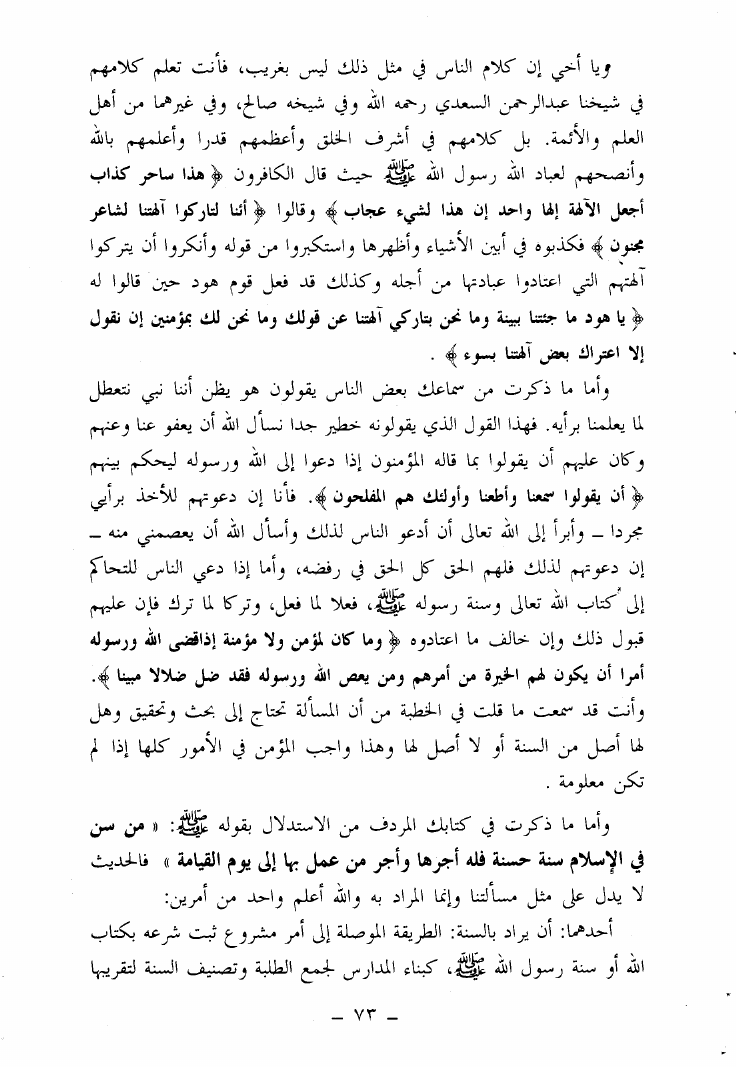 ويا أخي إن كلام الناس في مثل ذلك ليس بغريب، فأنت تعلم كلامهم
في شيخنا عبدالرحمن السعدي رحمه الله وفي شيخه صالح، وفي غيرهما من أهل
العلم والأئمة. بل كلامهم في أشرف الخلق وأعظمهم قدرا وأعلمهم بالله
وأنصحهم لعباد الله رسول الله ﷺ حيث قال الكافرون ﴿ هذا ساحر كذاب
أجعل الآلهة إلها واحد إن هذا لشيء عجاب ﴾ وقالوا ﴿ أئنا لتاركوا آلهتنا لشاعر
مجنون ﴾ فكذبوه في أبين الأشياء وأظهرها واستكبروا من قوله وأنكروا أن يتركوا
آلهتهم التي اعتادوا عبادتها من أجله وكذلك قد فعل قوم هود حين قالوا له
﴿ يا هود ما جئتنا ببينة وما نحن بتاركي آلهتنا عن قولك وما نحن لك بمؤمنين إن نقول
إلا اعتراك بعض آلهتنا بسوء ﴾ .
وأما ما ذكرت من سماعك بعض الناس يقولون هو يظن أننا نبي نتعطل
لما يعلمنا برأيه. فهذا القول الذي يقولونه خطير جدا نسأل الله أن يعفو عنا وعنهم
وكان عليهم أن يقولوا بما قاله المؤمنون إذا دعوا إلى الله ورسوله ليحكم بينهم
﴿ أن يقولوا سمعنا وأطعنا وأولئك هم المفلحون ﴾. فأنا إن دعوتهم للأخذ برأيي
مجردا – وأبرأ إلى الله تعالى أن أدعو الناس لذلك وأسأل الله أن يعصمني منه –
إن دعوتهم لذلك فلهم الحق كل الحق في رفضه، وأما إذا دعي الناس للتحاكم
إلى كتاب الله تعالى وسنة رسوله ﷺ، فعلا لما فعل، وتركا لما ترك فإن عليهم
قبول ذلك وإن خالف ما اعتادوه ﴿ وما كان لمؤمن ولا مؤمنة إذاقضى الله ورسوله
أمرا أن يكون لهم الخيرة من أمرهم ومن يعص الله ورسوله فقد ضل ضلالا مبينا ﴾.
وأنت قد سمعت ما قلت في الخطبة من أن المسألة تحتاج إلى بحث وتحقيق وهل
لها أصل من السنة أو لا أصل لها وهذا واجب المؤمن في الأمور كلها إذا لم
تكن معلومة .
وأما ما ذكرت في كتابك المردف من الاستدلال بقوله ﷺ: « من سن
في الإسلام سنة حسنة فله أجرها وأجر من عمل بها إلى يوم القيامة » فالحديث
لا يدل على مثل مسألتنا وإنما المراد به والله أعلم واحد من أمرين:
أحدهما: أن يراد بالسنة: الطريقة الموصلة إلى أمر مشروع ثبت شرعه بكتاب
الله أو سنة رسول الله ﷺ، كبناء المدارس لجمع الطلبة وتصنيف السنة لتقريبها
– ٧٣ –